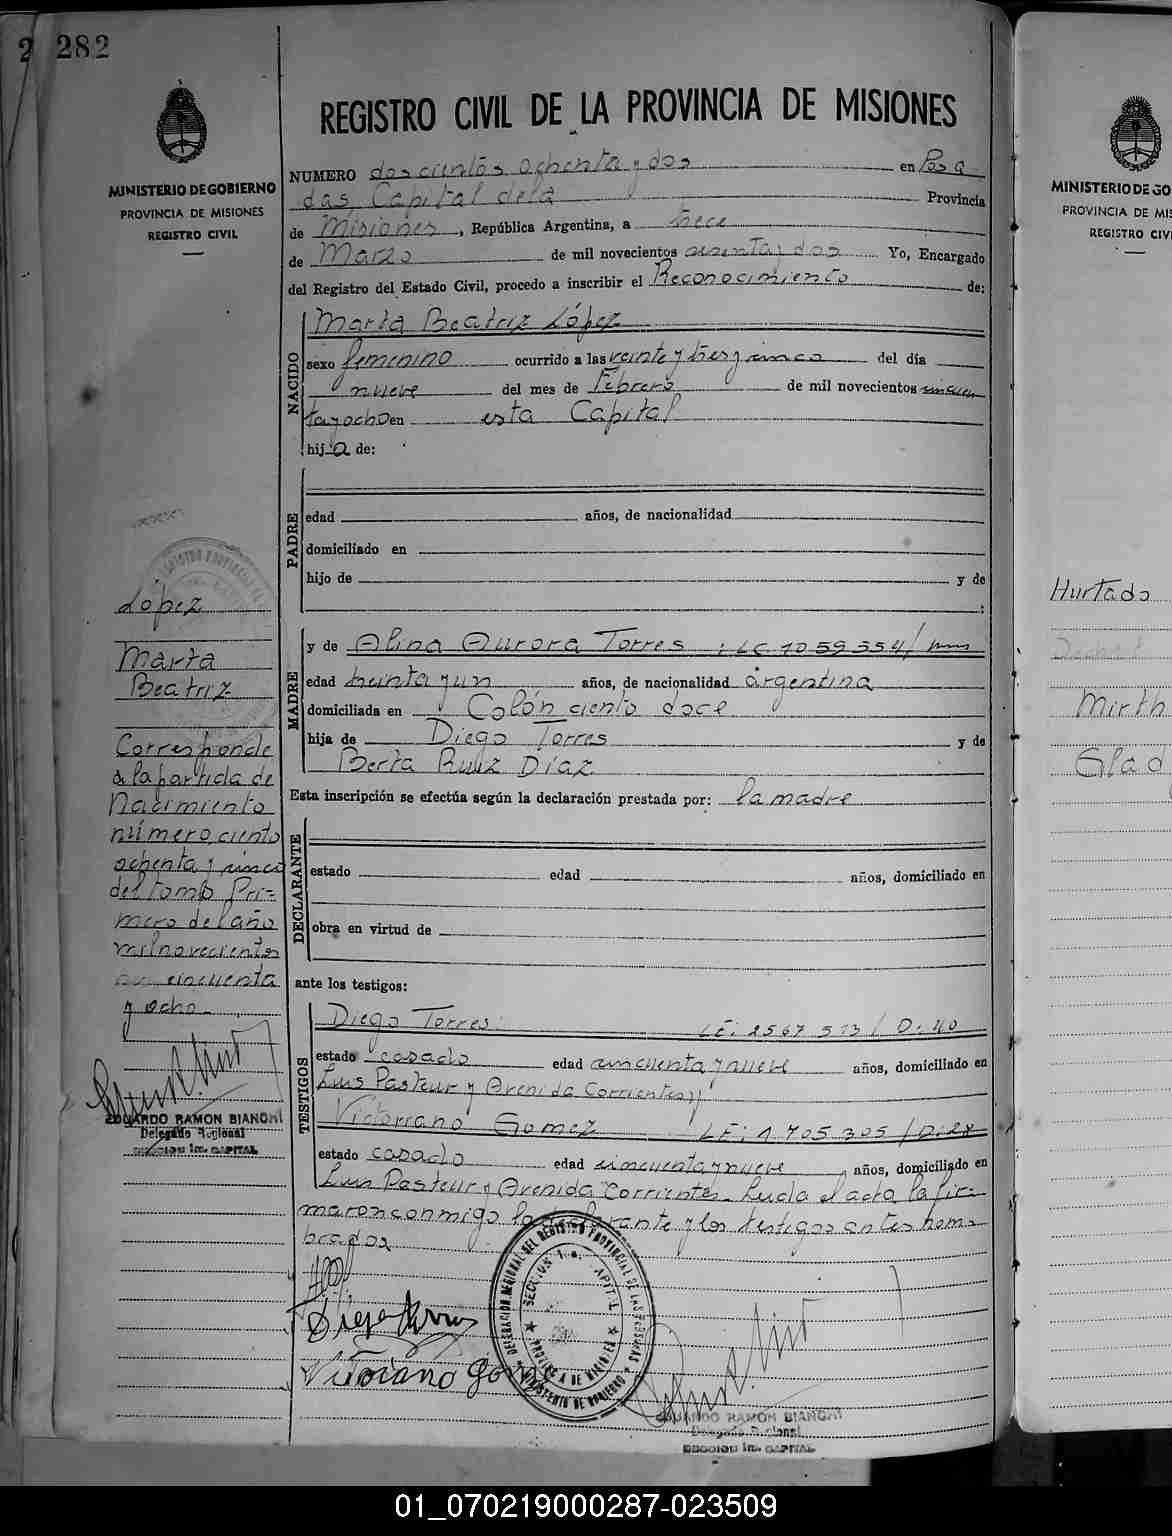 282
MINISTERIO DE GOBIERNO
PROVINCIA DE MISIONES
REGISTRO CIVIL
REGISTRO CIVIL DE LA PROVINCIA DE MISIONES
NUMERO doscientos ochenta y dos en Posa
das, Capital de la Provincia
de Misiones, República Argentina, a trece
de Marzo de mil novecientos sesenta y dos Yo, Encargado
del Registro del Estado Civil, procedo a inscribir el Reconocimiento de:
NACIDO
Marta Beatriz López
sexo femenino ocurrido a las veinte y tres y cinco del día
nueve del mes de Febrero de mil novecientos cincuen
ta y ocho en esta Capital
hija de:
PADRE
edad años, de nacionalidad
domiciliado en
hijo de y de
:
MADRE
y de Alina Aurora Torres : LC 1059354/
edad treinta y un años, de nacionalidad argentina
domiciliada en Colón ciento doce
hija de Diego Torres y de
Berta Ruiz Diaz
Esta inscripción se efectúa según la declaración prestada por: la madre
DECLARANTE
estado edad años, domiciliado en
obra en virtud de
ante los testigos:
TESTIGOS
Diego Torres: LE: 2567513/ D: 40
estado casado edad cincuenta y nueve años, domiciliado en
Luis Pasteur y Avenida Corrientes y
Victoriano Gomez LE: 1.705.305/D:28
estado casado edad cincuenta y nueve, años, domiciliado en
Luis Pasteur y Avenida Corrientes. Leida el acta, la fir-
maron conmigo la declarante y los testigos antes nom-
brados
Diego Torres
Victoriano Gomez
DELEGACION REGIONAL DEL REGISTRO PROVINCIAL DE LAS PERSONAS
PROVINCIA DE MISIONES
MINISTERIO DE GOBIERNO
EDUARDO RAMON BIANCHI
Delegado Regional
SECCION 1ra. CAPITAL
López
Marta
Beatriz
Corresponde
a la partida de
Nacimiento
número ciento
ochenta y cinco
del tomo Pri-
mero del año
mil novecientos
cincuenta
y ocho.
EDUARDO RAMON BIANCHI
Delegado Regional
SECCION 1ra. CAPITAL
MINISTERIO DE GO
PROVINCIA DE MIS
REGISTRO CIV
Hurtado
Mirth
Glad
01_070219000287-023509